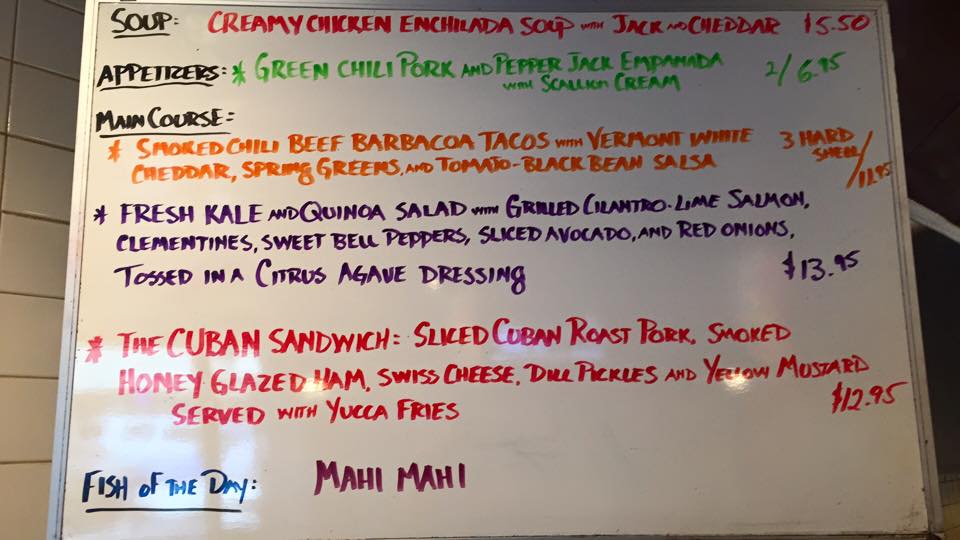 SOUP: CREAMY CHICKEN ENCHILADA SOUP WITH JACK AND CHEDDAR $5.50
APPETIZERS: * GREEN CHILI PORK AND PEPPER JACK EMPANADA 2/6.95
WITH SCALLION CREAM
MAIN COURSE:
* SMOKED CHILI BEEF BARBACOA TACOS WITH VERMONT WHITE 3 HARD
CHEDDAR, SPRING GREENS, AND TOMATO-BLACK BEAN SALSA SHELL/11.95
* FRESH KALE AND QUINOA SALAD WITH GRILLED CILANTRO-LIME SALMON,
CLEMENTINES, SWEET BELL PEPPERS, SLICED AVOCADO, AND RED ONIONS,
TOSSED IN A CITRUS AGAVE DRESSING $13.95
* THE CUBAN SANDWICH: SLICED CUBAN ROAST PORK, SMOKED
HONEY GLAZED HAM, SWISS CHEESE, DILL PICKLES AND YELLOW MUSTARD
SERVED WITH YUCCA FRIES $12.95
FISH OF THE DAY: MAHI MAHI